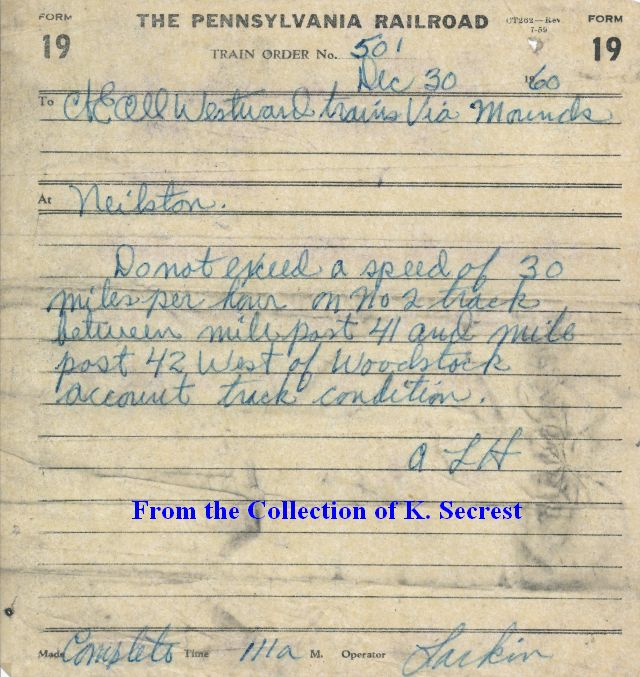 FORM 19 THE PENNSYLVANIA RAILROAD CT262—Rev. 7-59 FORM 19
TRAIN ORDER No. 501
Dec 30 1960
To C&E All Westward trains Via Mounds
At Neilston.
Do not exceed a speed of 30
miles per hour on No 2 track
between mile post 41 and mile
post 42 West of Woodstock
account track condition.
A L H
From the Collection of K. Secrest
Made Complete Time 111a M. Operator Larkin